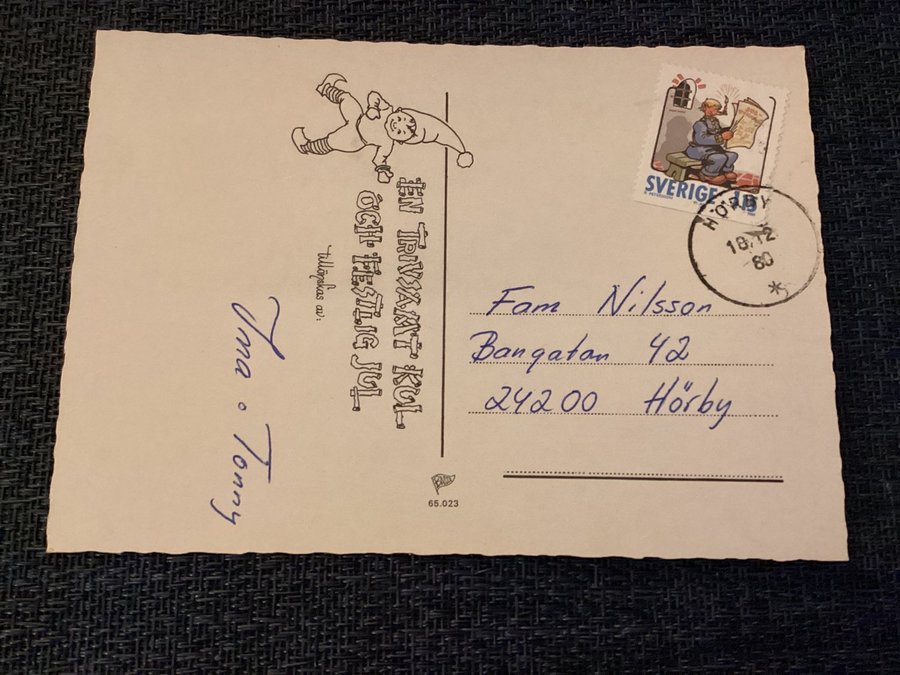 EN TRIVSAM KUL-
OCH FESTLIG JUL
Tillönskas av:
Irna o Tonny
SVERIGE 115
HÖRBY
18.12
80
*
Fam Nilsson
Bangatan 42
24200 Hörby
65.023